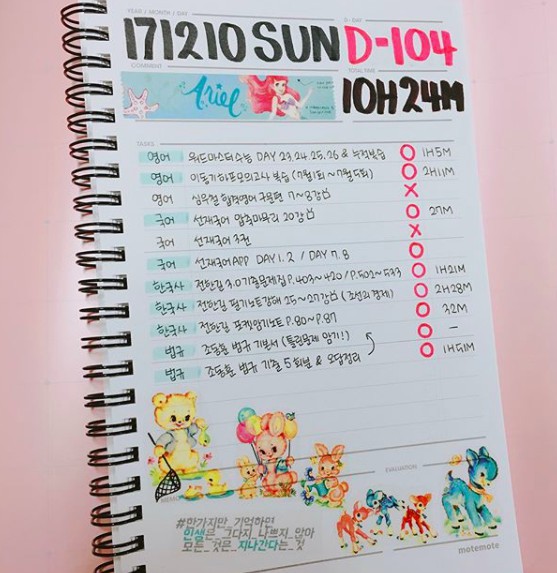 YEAR / MONTH / DAY
D-DAY
171210 SUN D-104
COMMENT
TOTAL TIME
Ariel
10H 24M
TASKS
영어 워드마스터수능 DAY 23.24.25.26 & 누적복습 O 1H5M
영어 이동기하프모의고사 복습 (7월1회~7월5회) O 2H11M
영어 심우철 합격영어 구문편 7~8강 X
국어 선재국어 암축마무리 20강 O 27M
국어 선재국어 3권 X
국어 선재국어APP DAY 1.2 / DAY 7.8 O
한국사 전한길 3.0기출문제집 P.403~420 / P.502~533 O 1H21M
한국사 전한길 필기노트강해 25~27강 (조선의 경제) O 2H28M
한국사 전한길 포켓암기노트 P.80~P.87 O 32M
법규 조동훈 법규 기본서 (틀린문제 암기!) O -
법규 조동훈 법규 기출 5회분 & 오답정리 O 1H51M
MEMO
EVALUATION
#한가지만_기억하면
인생은_그다지_나쁘지_않아
모든_것은_지나간다는_것
motemote